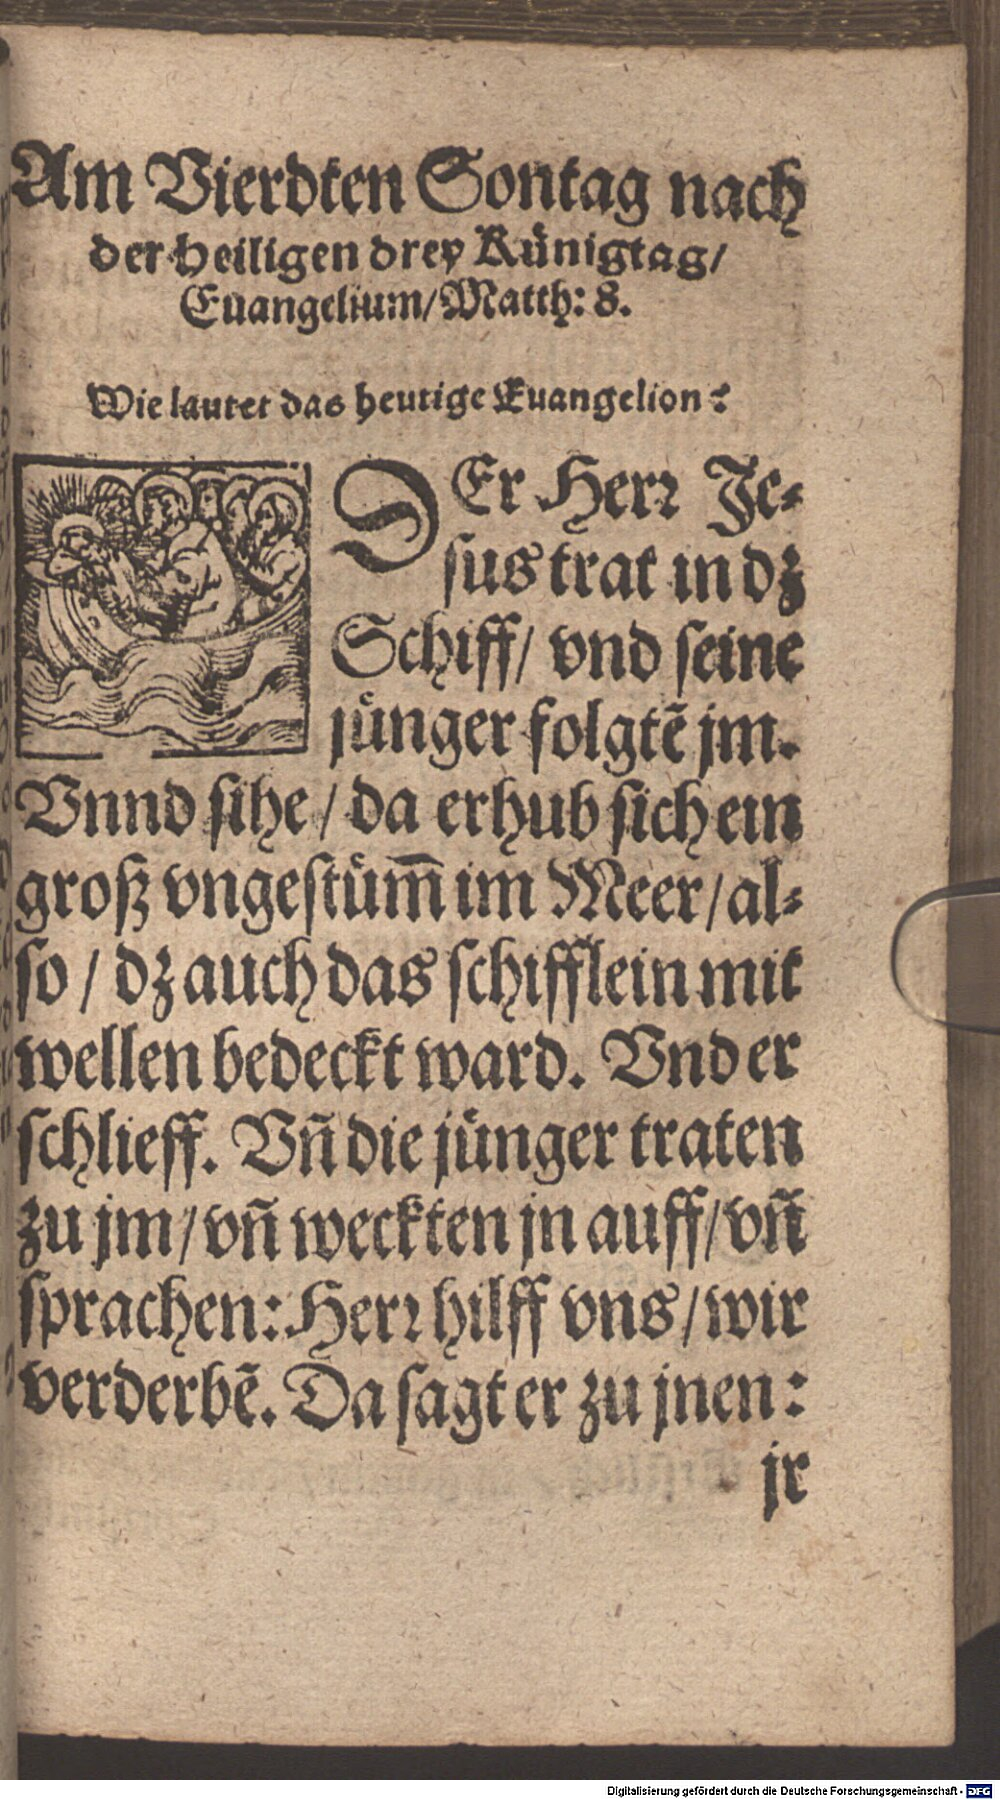 Am Vierdten Sontag nach
der heiligen drey Künigtag/
Euangelium/Matth: 8.
Wie lautet das heutige Euangelion?
DEr Herr Je-
sus trat in dz
Schiff/ vnd seine
jünger folgtẽ jm.
Vnnd sihe/ da erhub sich ein
groß vngestüm̃ im Meer/ al-
so/ dz auch das schifflein mit
wellen bedeckt ward. Vnd er
schlieff. Vñ die jünger traten
zu jm/ vñ weckten jn auff/ vñ
sprachen: Herr hilff vns/ wir
verderbẽ. Da sagt er zu jnen:
jr
Digitalisierung gefördert durch die Deutsche Forschungsgemeinschaft - DFG